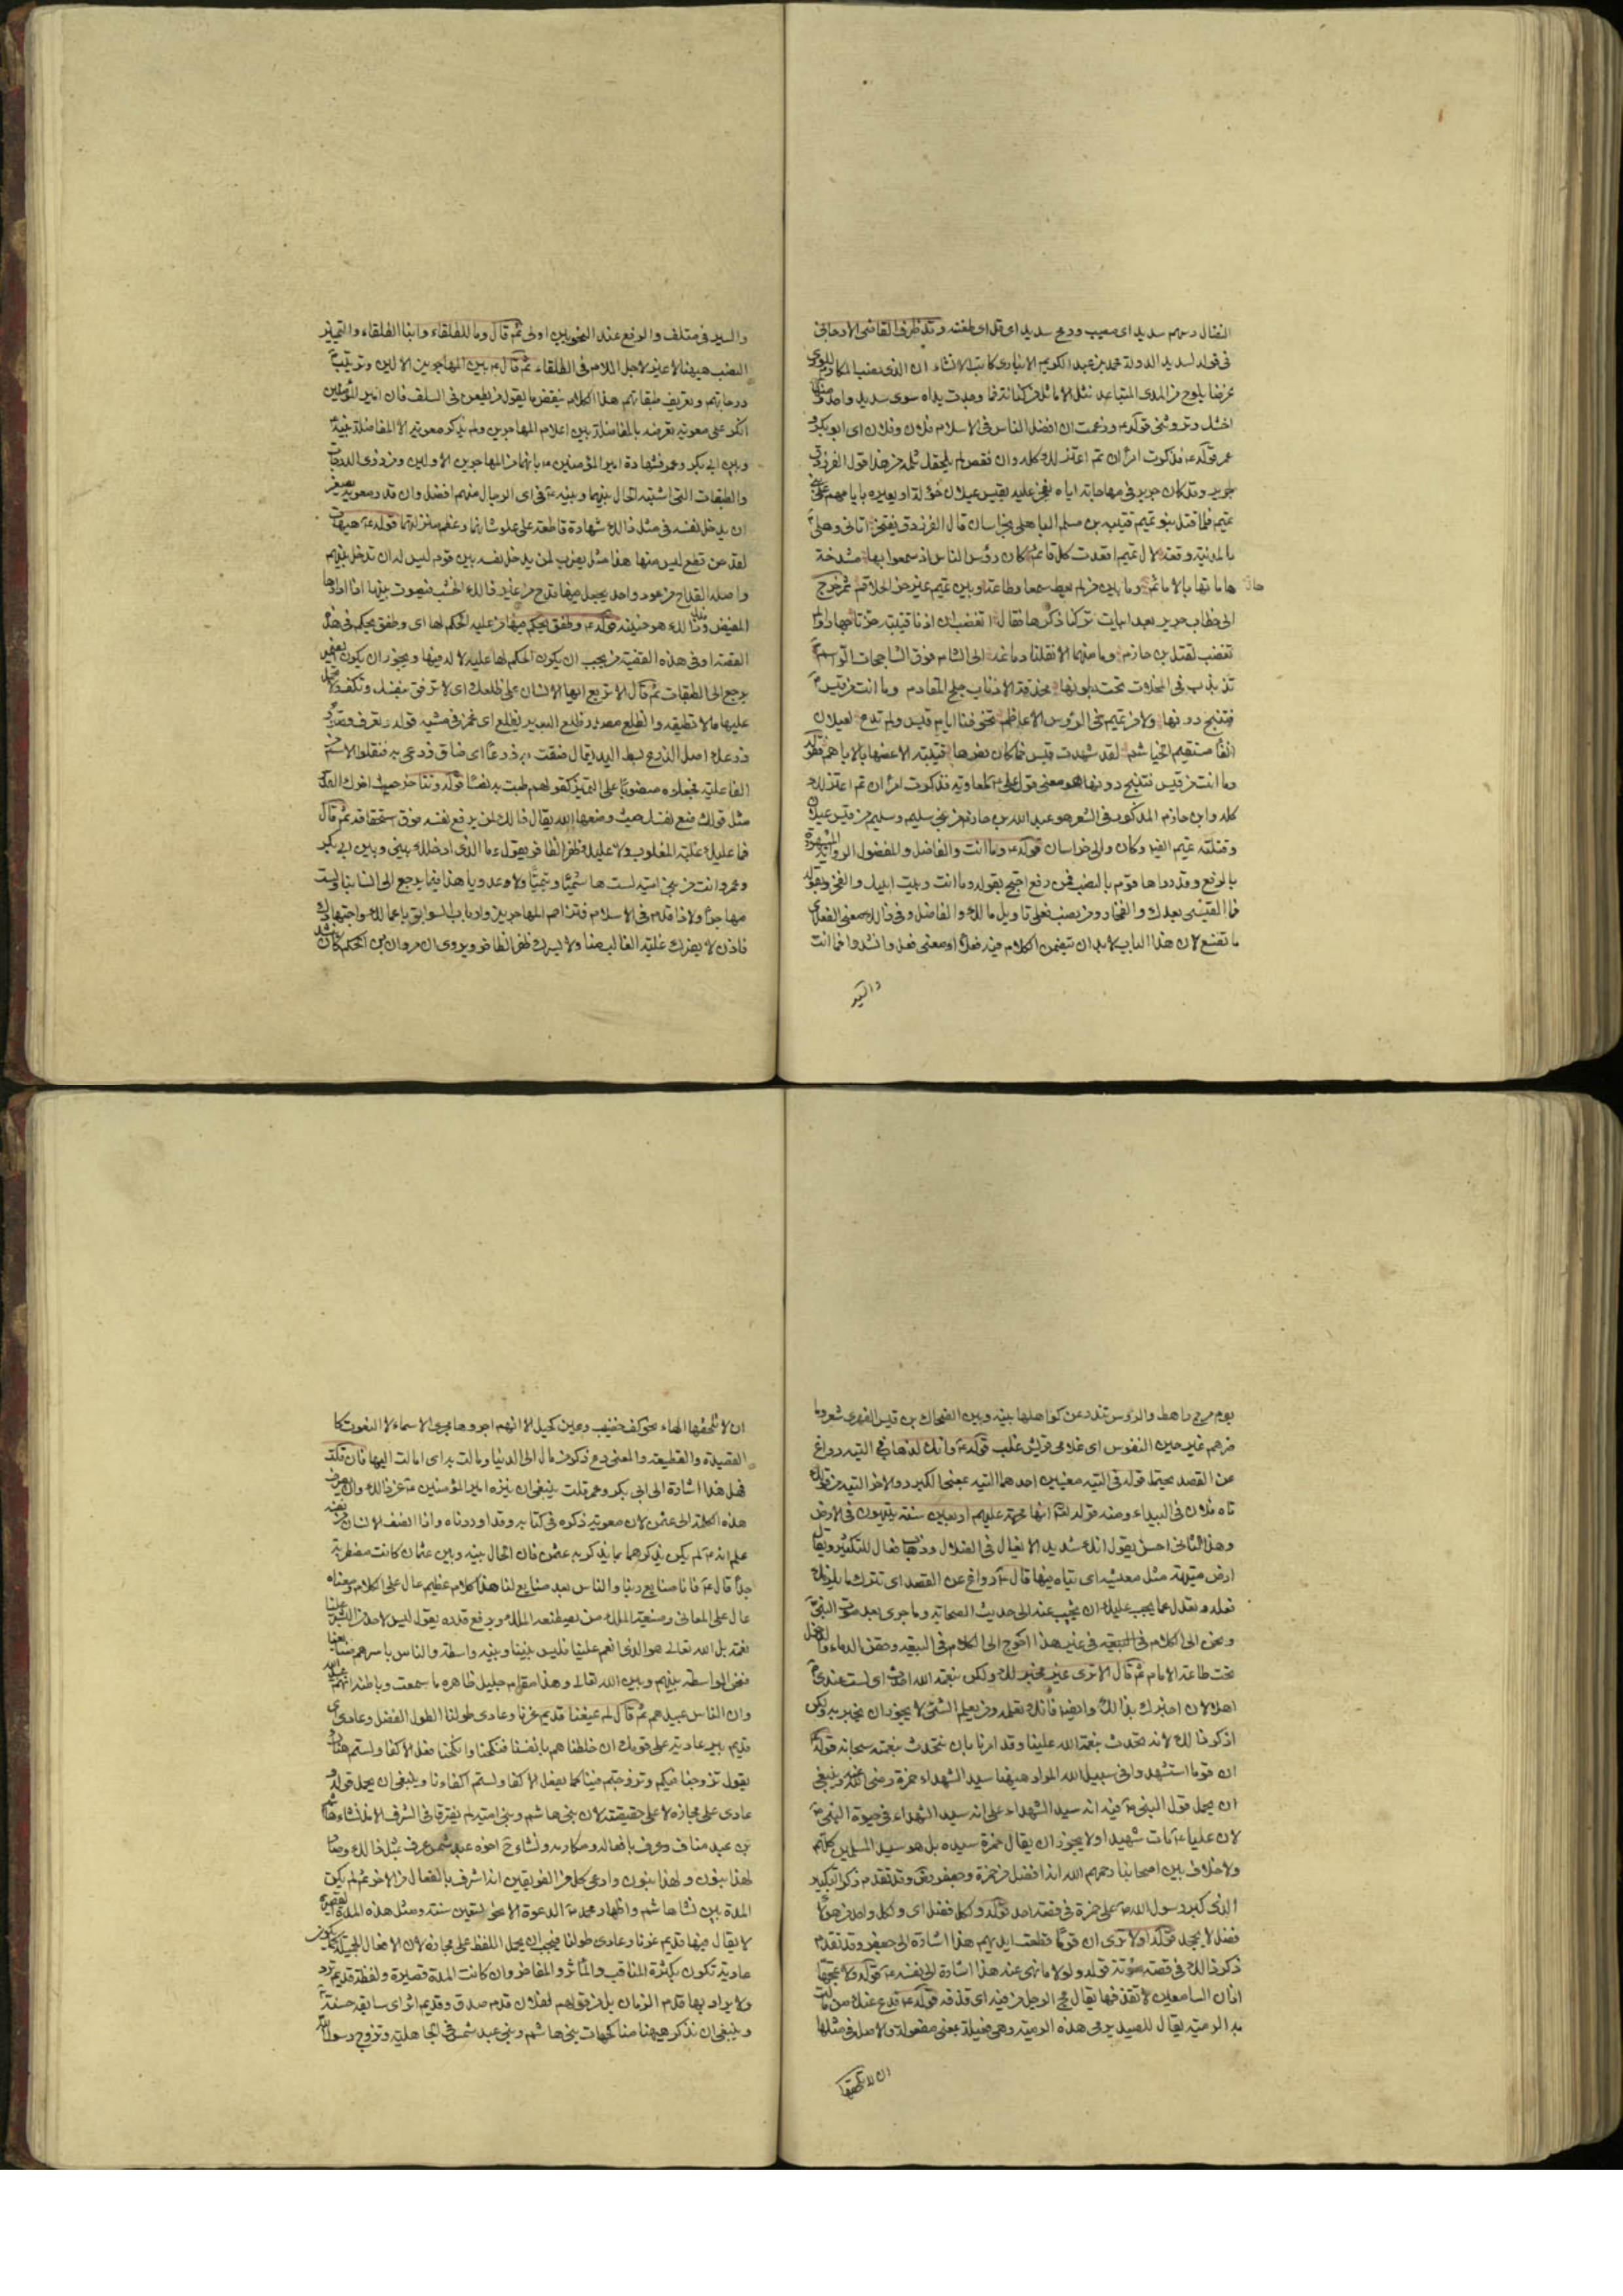 النضال وسهم سديد اى مصيب ورمح سديد اى قل اى طعنته وقد ظرف القاضى الارجانى
فى قوله لسديد الدولة محمد بن عبد الكريم الانبارى كاتب الانشاء ان الذى نصب المكارم للورى
غرضا يلوح من المدى المتباعد نثل الاماثل من كنانته فما وجدت يداه سوى سديد واحد ومنها
وتروى قوله ع وزعمت ان افضل الناس فى الاسلام فلان وفلان اى ابو بكر و
عمر قوله ع فذكرت امرا ان تم اعتزلك كله وان نقص لم يلحقك ثلمه من هذا قول الفرزدق
لجرير وقد كان جرير فى مهاجاته اياه يفخر عليه بقيس عيلان خؤلة او يعيره بايامهم على بنى
تميم فلما قتل بنو تميم قتيبه بن مسلم الباهلى بخراسان قال الفرزدق يفتخر اتانى وهلى
بالمدينة وقعة لآل تميم اقعدت كل قائم كان رؤس الناس اذ سمعوا بها مشدخة
هاماتها بالامائم وما بين من لم يعط سمعا وطاعة وبين تميم غير حز الحلاقم ثم خرج
الى خطاب جرير بعد ابيات تركنا ذكرها فقال اتغضب ان اذنا قتيبة حزتا جهارا ولم
تغضب لقتل بن خازم وما منهما الا نقلنا دماغه الى الشام فوق الشاحجات الرواسم
تذبذب فى المخلات تحت بطونها محذفة الاذناب جلح المقادم وما انت من قيس
فتنبح دونها ولا من تميم فى الرؤس الاعاظم تخوفنا ايام قيس ولم تدع لعيلان
انفا مستقيم الخياشم لقد شهدت قيس فما كان نصرها قتيبة الا عضها بالاباهم فقوله
وما انت من قيس فتنبح دونها هو معنى قول على ع لمعاوية فذكرت امرا ان تم اعتزلك
كله وابن خازم المذكور فى الشعر هو عبد الله بن خازم من بنى سليم وسليم من قيس عيلان
وقتلته تميم ايضا وكان والى خراسان قوله ع وما انت والفاضل والمفضول الرواية المشهورة
بالرفع وقد رواها قوم بالنصب فمن رفع احتج بقوله وما انت وبيت ابيك والفخر وبقوله
فما القيسى بعدك والفخار ومن نصب فعلى تاويل مالك والفاضل وفى ذلك معنى الفعل اى
ما تصنع لان هذا الباب لا بد ان يتضمن الكلام فيه فعلا او معنى فعل وانشدوا فما انت
والسير
والسير فى متلف والرفع عند النحويين اولى ثم قال وما للطلقاء وابناء الطلقاء والتمييز
النصب ههنا لا غير لاجل اللام فى الطلقاء ثم قال ع بين المهاجرين الاولين وترتيب
درجاتهم وتعريف طبقاتهم هذا الكلام ينقض ما يقول من يطعن فى السلف فان امير المؤمنين
انكر على معوية تعرضه بالمفاضلة بين اعلام المهاجرين ولم يذكر معوية الا المفاضلة بينه
وبين ابى بكر وعمر فشهادة امير المؤمنين ع بانهما من المهاجرين الاولين ومن ذوى الدرجات
والطبقات التى اشتبه الحال بينهما وبينه ع فى اى الرجال منهم افضل وان قدر معوية يصغر
ان يدخل نفسه فى مثل ذلك شهادة قاطعة على علو شانهما وعظم منزلتهما قوله ع هيهات
لقد حن قدح ليس منها هذا مثل يضرب لمن يدخل نفسه بين قوم ليس له ان يدخل بينهم
واصله القداح من عود واحد يجعل فيها قدح من غير ذلك الخشب فيصوت بينها اذا ارادها
المفيض فذلك الصوت هو حنينه قوله ع وطفق يحكم فيها من عليه الحكم لها اى وطفق يحكم فى هذه
القصة او فى هذه القضية من يجب ان يكون الحكم لها عليه لا له فيها ويجوز ان يكون الضمير
يرجع الى الطبقات ثم قال الا تربع ايها الانسان على ظلعك اى الا ترفق بنفسك وتكف ولا تحمل
عليها ما لا تطيقه والظلع مصدر ظلع البعير يظلع اى غمز فى مشيه قوله وتعرف قصور
ذرعك اصل الذرع بسط اليد يقال ضقت به ذرعا اى ضاق ذرعى به فنقلوا الاسم من
الفاعلية فجعلوه منصوبا على التمييز كقولهم طبت به نفسا قوله وتتاخر حيث اخرك القدر
مثل قولك ضع نفسك حيث وضعها الله يقال ذلك لمن يرفع نفسه فوق استحقاقه ثم قال
فما عليك غلبة المغلوب ولا عليك ظفر الظافر يقول ع ما الذى ادخلك بينى وبين ابى بكر
وعمر وانت من بنى امية لست هاشميا ولا تيميا ولا عدويا هذا فيما يرجع الى انسابنا ولست
مهاجرا ولا ذا قدم فى الاسلام فتزاحم المهاجرين وارباب السوابق باعمالك واجتهادك
فاذن لا يضرك غلبة الغالب منا ولا يسرك ظفر الظافر ويروى ان مروان بن الحكم كان ينشد
يوم مرج راهط والرؤس تندر عن كواهلها بينه وبين الضحاك بن قيس الفهرى شعر وما
ضرهم غير حين النفوس اى غلامى قريش غلب قوله ع وانك لذهاب فى التيه رواغ
عن القصد يحتمل قوله فى التيه معنيين احدهما التيه بمعنى الكبر والاخر التيه من قولك
تاه فلان فى البيداء ومنه قوله تعالى انها محرمة عليهم اربعين سنة يتيهون فى الارض
وهذا الثانى احسن يقول انك شديد الايغال فى الضلال وذهاب فعال للتكثير ويقال
ارض متيهة مثل معيشة اى يتاه فيها قال ع رواغ عن القصد اى تترك ما يلزمك
فعله وتعدل عما يجب عليك ان تجيب عنه الى حديث الصحابة وما جرى بعد موت النبى ص
ونحن الى الكلام فى البيعة فى غير هذا احوج الى الكلام فى البيعة وحقن الدماء والدخول
تحت طاعة الامام ثم قال الا ترى غير مخبر لك ولكن بنعمة الله احدث اى لست عندى
اهلا لان اخبرك بذلك وايضا فانك تعلمه ومن يعلم الشئ لا يجوز ان يخبر به ولكن
اذكر ذلك لانه تحدث بنعمة الله علينا وقد امرنا بان نتحدث بنعمته سبحانه قوله ع
ان قوما استشهدوا فى سبيل الله المراد ههنا سيد الشهداء حمزة رضى الله عنه وينبغى
ان يحمل قول النبى ص فيه انه سيد الشهداء على انه سيد الشهداء فى حيوة النبى ص
لان عليا ع مات شهيدا ولا يجوز ان يقال حمزة سيده بل هو سيد المسلمين كلهم
ولا خلاف بين اصحابنا رحمهم الله انه افضل من حمزة وجعفر وقد تقدم ذكر التكبير
الذى كبره رسول الله ص على حمزة فى قصة احد قوله ولكل فضل اى ولكل واحد من هؤلاء
فضل لا يجحد قوله اولا ترى ان قوما قطعت ايديهم هذا اشارة الى جعفر وقد تقدم
ذكر ذلك فى قصة مؤتة قوله ولولا ما نهى عنه هذا اشارة الى نفسه ع قوله ولا تمجها
اذان السامعين لا تقذفها يقال مج الرجل من فيه اى قذفه قوله ع فدع عنك من مالت
به الرمية يقال للصيد يرمى هذه الرمية وهى فعيلة بمعنى مفعولة والاصل فى مثلها
ان لا تلحقها
ان لا تلحقها الهاء نحو كف خضيب وعين كحيل الا انهم اجروها مجرى الاسماء لا النعوت كا
لقصيدة والقطيعة والمعنى دع ذكر من مال الى الدنيا ومالت به اى امالته اليها فان قلت
فهل هذا اشارة الى ابى بكر وعمر قلت ينبغى ان ينزه امير المؤمنين ع عن ذلك وان يصرف
هذه الكلمة الى عثمن لان معوية ذكره فى كتابه وقد اوردناه واذا انصف الانسان من نفسه
علم انه ع لم يكن يذكرهما بما يذكر به عثمن فان الحال بينه وبين عثمان كانت مضطربة
جدا قال ع فانا صنايع ربنا والناس بعد صنايع لنا هذا كلام عظيم عال على الكلام ومعناه
عال على المعانى وصنيعة الملك من يصطنعه الملك ويرفع قدره يقول ليس لاحد من البشر علينا
نعمة بل الله تعالى هو الذى انعم علينا فليس بيننا وبينه واسطة والناس باسرهم صنايعنا
فنحن الواسطة بينهم وبين الله تعالى وهذا مقام جليل ظاهره ما سمعت وباطنه انهم عبيد الله
وان الناس عبيدهم ثم قال لم يمنعنا قديم عزنا وعادى طولنا الطول الفضل وعادى
قديم بئر عادية على قومك ان خلطناهم بانفسنا فنكحنا وانكحنا فعل الاكفاء ولستم هناك
يقول تزوجنا فيكم وتزوجتم فينا كما يفعل الاكفاء ولستم اكفاءنا وينبغى ان يحمل قوله
عادى على مجازه لا على حقيقته لان بنى هاشم وبنى امية لم يفترقا فى الشرف الا منذ نشاء هاشم
بن عبد مناف وعرف بافعاله ومكارمه ونشاء ح اخوه عبد شمس وعرف بمثل ذلك وصار
لهذا بنون ولهذا بنون وادعى كل من الفريقين انه اشرف بالفعال من الاخر ثم لم تكن
المدة بين نشاء هاشم واظهار محمد ص الدعوة الا نحو تسعين سنة ومثل هذه المدة القصيرة
لا يقال فيها قديم عزنا وعادى طولنا فيجب ان يحمل اللفظ على مجازه لان الافعال الجميلة كما يكون
عادية تكون بكثرة المناقب والمآثر والمفاخر وان كانت المدة قصيرة ولفظة قديم ترد
ولا يراد بها قدم الزمان بل من قولهم لفلان قدم صدق وقديم اثر اى سابقة حسنة
وينبغى ان نذكر ههنا مناكحات بنى هاشم وبنى عبد شمس فى الجاهلية وتزوج رسول الله